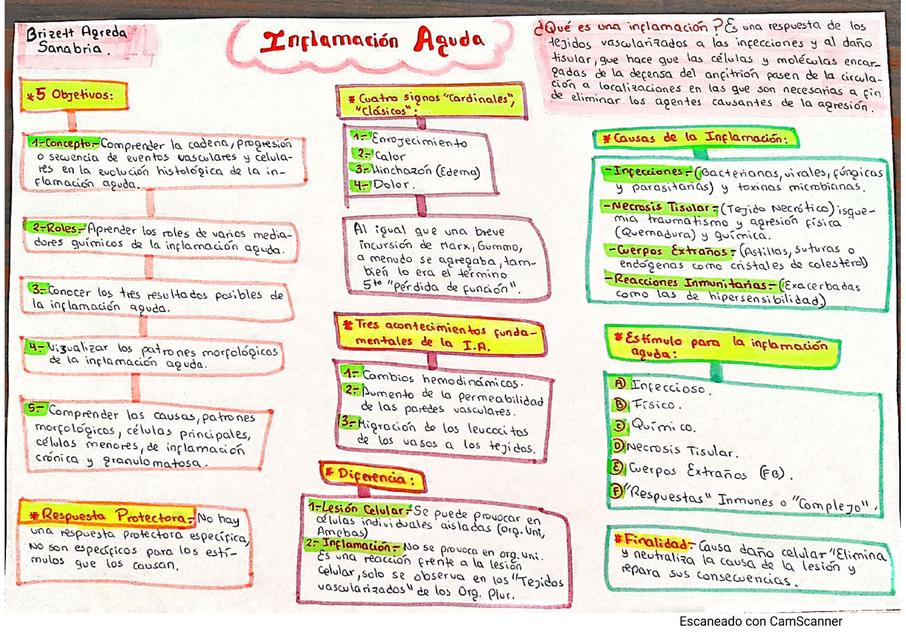 Brizett Agreda
Sanabria.
Inflamación Aguda
¿Qué es una inflamación? Es una respuesta de los
tejidos vascularizados a las infecciones y al daño
tisular, que hace que las células y moléculas encar-
gadas de la defensa del anfitrión pasen de la circula-
ción a localizaciones en las que son necesarias a fin
de eliminar los agentes causantes de la agresión.
*5 Objetivos:
1-Concepto- Comprender la cadena, progresión
o secuencia de eventos vasculares y celula-
res en la evolución histológica de la in-
flamación aguda.
2-Roles- Aprender los roles de varios media-
dores químicos de la inflamación aguda.
3- Conocer los tres resultados posibles de
la inflamación aguda.
4- Vizualizar los patrones morfológicos
de la inflamación aguda.
5- Comprender las causas, patrones
morfológicos, células principales,
células menores, de inflamación
crónica y granulomatosa.
*Respuesta Protectora- No hay
una respuesta protectora específica,
no son específicos para los estí-
mulos que los causan.
*Cuatro signos "Cardinales",
"Clásicos":
1- Enrojecimiento
2- Calor
3- Hinchazón (Edema)
4- Dolor.
Al igual que una breve
incursión de Marx, Gummo,
a menudo se agregaba, tam-
bién lo era el término
5to "pérdida de función".
*Tres acontecimientos funda-
mentales de la I.A.
1- Cambios hemodinámicos.
2- Aumento de la permeabilidad
de las paredes vasculares.
3- Migración de los leucocitos
de los vasos a los tejidos.
*Diferencia:
1-Lesión Celular- Se puede provocar en
células individuales aisladas (Org. Uni,
Amebas)
2-Inflamación- No se provoca en org. uni.
Es una reacción frente a la lesión
celular, solo se observa en los "Tejidos
vascularizados" de los Org. Plur.
*Causas de la Inflamación:
-Infecciones- (Bacterianas, virales, fúngicas
y parasitarias) y toxinas microbianas.
-Necrosis Tisular- (Tejido Necrótico) isque-
mia traumatismo y agresión física
(Quemadura) y química.
-Cuerpos Extraños- (Astillas, suturas o
endógenas como cristales de colesterol)
-Reacciones Inmunitarias- (Exacerbadas
como las de hipersensibilidad)
*Estímulo para la inflamación
aguda:
A) Infeccioso.
B) Físico.
C) Químico.
D) Necrosis Tisular.
E) Cuerpos Extraños (FB).
F) "Respuestas" Inmunes o "Complejo".
*Finalidad- Causa daño celular "Elimina
y neutraliza la causa de la lesión y
repara sus consecuencias.
Escaneado con CamScanner